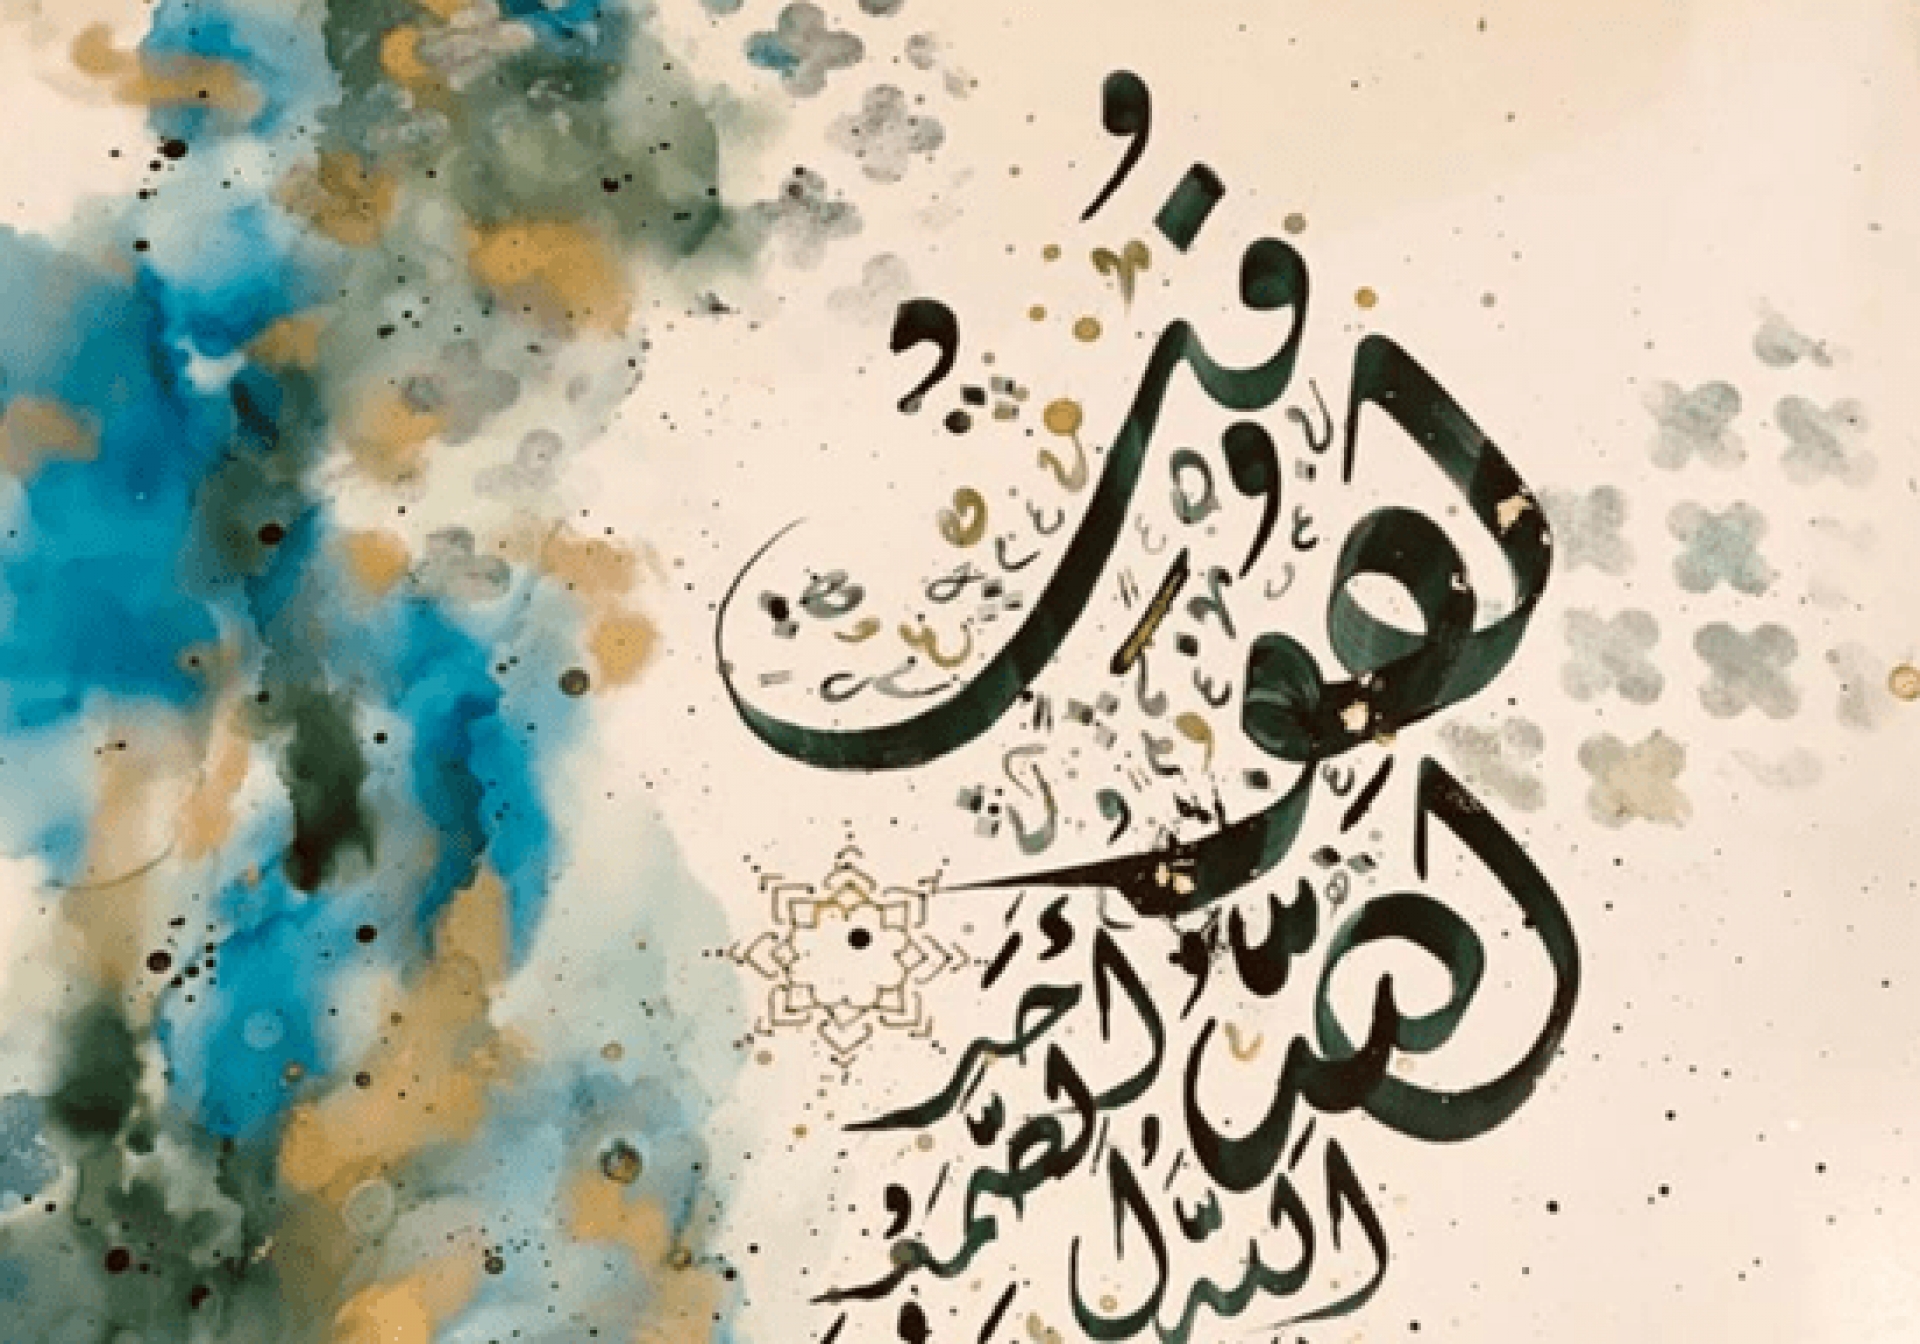 قُلْ
هُوَ
اللّٰهُ
أَحَد
اللّٰهُ الصَّمَدُ